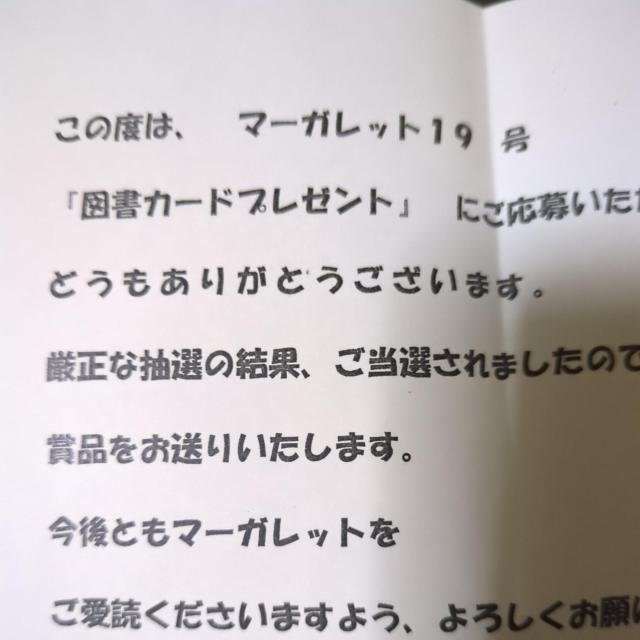 この度は、 マーガレット19 号
『図書カードプレゼント』 にご応募いただ
どうもありがとうございます。
厳正な抽選の結果、ご当選されましたので
賞品をお送りいたします。
今後ともマーガレットを
ご愛読くださいますよう、よろしくお願い